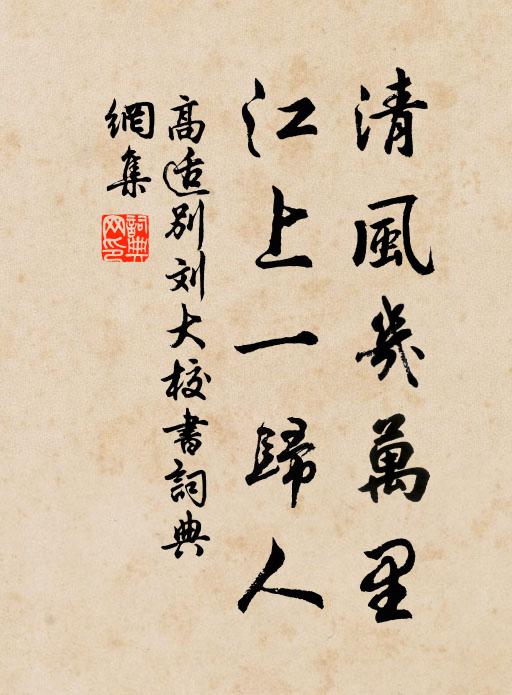 清風幾萬里
江上一歸人
高适別刘大校書詞典
網集
詞典
网印